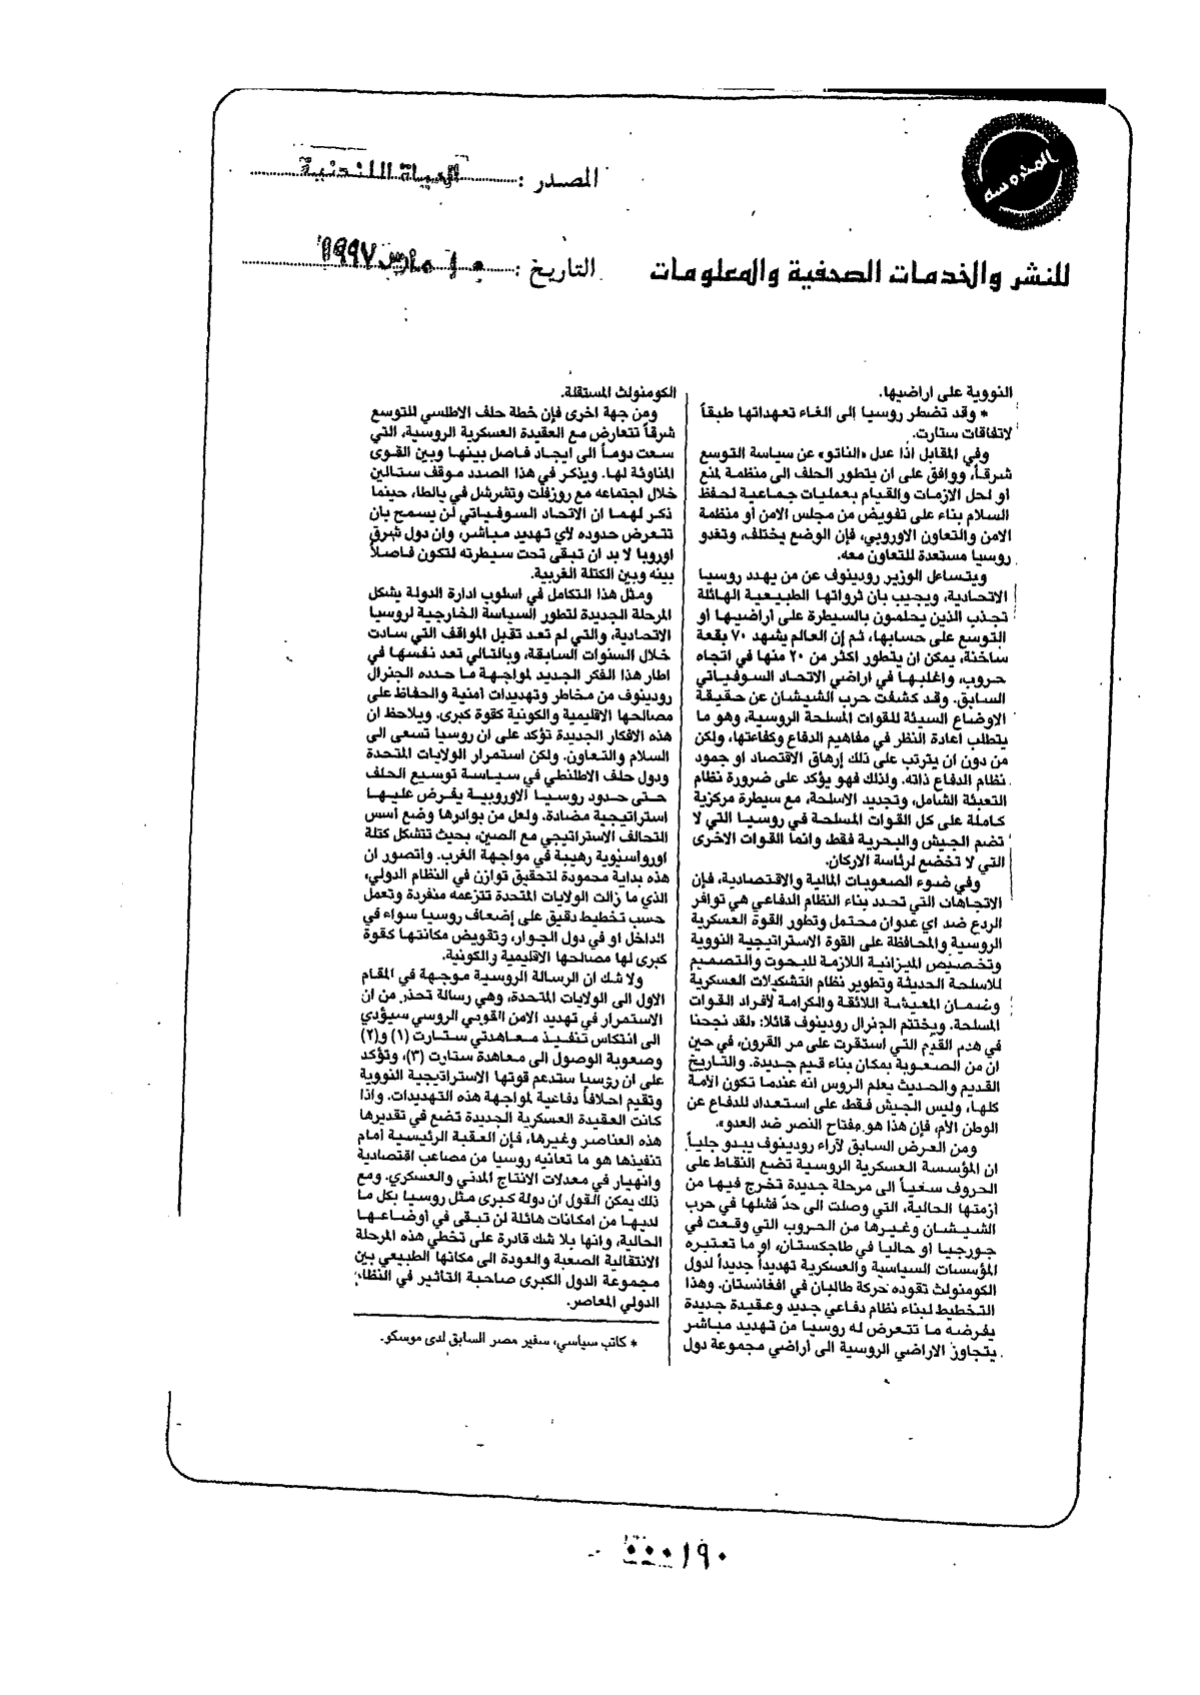 المحروسة
المصدر : الحياة اللندنية
للنشر والخدمات الصحفية والمعلومات
التاريخ : ١٠ مارس ١٩٩٧
النووية على اراضيها.
* وقد تضطر روسيا إلى الغاء تعهداتها طبقاً
لاتفاقات ستارت.
وفي المقابل اذا عدل «الناتو» عن سياسة التوسع
شرقاً، ووافق على ان يتطور الحلف الى منظمة لمنع
او لحل الازمات والقيام بعمليات جماعية لحفظ
السلام بناء على تفويض من مجلس الامن أو منظمة
الامن والتعاون الاوروبي، فإن الوضع يختلف، وتغدو
روسيا مستعدة للتعاون معه.
ويتساءل الوزير رودينوف عن من يهدد روسيا
الاتحادية، ويجيب بأن ثرواتها الطبيعية الهائلة
تجذب الذين يحلمون بالسيطرة على أراضيها أو
التوسع على حسابها، ثم إن العالم يشهد ٧٠ بقعة
ساخنة، يمكن ان يتطور اكثر من ٢٠ منها في اتجاه
حروب، واغلبها في اراضي الاتحاد السوفياتي
السابق. وقد كشفت حرب الشيشان عن حقيقة
الاوضاع السيئة للقوات المسلحة الروسية، وهو ما
يتطلب اعادة النظر في مفاهيم الدفاع وكفاءتها، ولكن
من دون ان يترتب على ذلك إرهاق الاقتصاد او جمود
نظام الدفاع ذاته. ولذلك فهو يؤكد على ضرورة نظام
التعبئة الشامل، وتجديد الاسلحة، مع سيطرة مركزية
كاملة على كل القوات المسلحة في روسيا التي لا
تضم الجيش والبحرية فقط وانما القوات الاخرى
التي لا تخضع لرئاسة الاركان.
وفي ضوء الصعوبات المالية والاقتصادية، فإن
الاتجاهات التي تحدد بناء النظام الدفاعي هي توافر
الردع ضد اي عدوان محتمل وتطور القوة العسكرية
الروسية والمحافظة على القوة الاستراتيجية النووية
وتخصيص الميزانية اللازمة للبحوث والتصميم
للاسلحة الحديثة وتطوير نظام التشكيلات العسكرية
وضمان المعيشة اللائقة والكرامة لأفراد القوات
المسلحة. ويختتم الجنرال رودينوف قائلا: «لقد نجحنا
في هدم القيم التي استقرت على مر القرون، في حين
ان من الصعوبة بمكان بناء قيم جديدة. والتاريخ
القديم والحديث يعلم الروس انه عندما تكون الأمة
كلها، وليس الجيش فقط، على استعداد للدفاع عن
الوطن الأم، فإن هذا هو مفتاح النصر ضد العدو».
ومن العرض السابق لآراء رودينوف يبدو جلياً
ان المؤسسة العسكرية الروسية تضع النقاط على
الحروف سعياً الى مرحلة جديدة تخرج فيها من
أزمتها الحالية، التي وصلت الى حدّ فشلها في حرب
الشيشان وغيرها من الحروب التي وقعت في
جورجيا او حاليا في طاجكستان، او ما تعتبره
المؤسسات السياسية والعسكرية تهديداً جديداً لدول
الكومنولث تقوده حركة طالبان في افغانستان. وهذا
التخطيط لبناء نظام دفاعي جديد وعقيدة جديدة
يفرضه ما تتعرض له روسيا من تهديد مباشر
يتجاوز الاراضي الروسية الى أراضي مجموعة دول
الكومنولث المستقلة.
ومن جهة اخرى فإن خطة حلف الاطلسي للتوسع
شرقاً تتعارض مع العقيدة العسكرية الروسية، التي
سعت دوماً الى ايجاد فاصل بينها وبين القوى
المناوئة لها. ويذكر في هذا الصدد موقف ستالين
خلال اجتماعه مع روزفلت وتشرشل في يالطا، حينما
ذكر لهما ان الاتحاد السوفياتي لن يسمح بأن
تتعرض حدوده لأي تهديد مباشر، وان دول شرق
اوروبا لا بد ان تبقى تحت سيطرته لتكون فاصلاً
بينه وبين الكتلة الغربية.
ومثل هذا التكامل في اسلوب ادارة الدولة يشكل
المرحلة الجديدة لتطور السياسة الخارجية لروسيا
الاتحادية، والتي لم تعد تقبل المواقف التي سادت
خلال السنوات السابقة، وبالتالي تعد نفسها في
اطار هذا الفكر الجديد لمواجهة ما حدده الجنرال
رودينوف من مخاطر وتهديدات أمنية والحفاظ على
مصالحها الاقليمية والكونية كقوة كبرى. ويلاحظ ان
هذه الافكار الجديدة تؤكد على ان روسيا تسعى الى
السلام والتعاون. ولكن استمرار الولايات المتحدة
ودول حلف الاطلنطي في سياسة توسيع الحلف
حتى حدود روسيا الاوروبية يفرض عليها
استراتيجية مضادة. ولعل من بوادرها وضع أسس
التحالف الاستراتيجي مع الصين، بحيث تتشكل كتلة
اورواسيوية رهيبة في مواجهة الغرب. واتصور ان
هذه بداية محمودة لتحقيق توازن في النظام الدولي،
الذي ما زالت الولايات المتحدة تتزعمه منفردة وتعمل
حسب تخطيط دقيق على إضعاف روسيا سواء في
الداخل او في دول الجوار، وتقويض مكانتها كقوة
كبرى لها مصالحها الاقليمية والكونية.
ولا شك ان الرسالة الروسية موجهة في المقام
الاول الى الولايات المتحدة، وهي رسالة تحذر من ان
الاستمرار في تهديد الامن القومي الروسي سيؤدي
الى انتكاس تنفيذ معاهدتي ستارت (١) و(٢)
وصعوبة الوصول الى معاهدة ستارت (٣)، وتؤكد
على ان روسيا ستدعم قوتها الاستراتيجية النووية
وتقيم احلافاً دفاعية لمواجهة هذه التهديدات. واذا
كانت العقيدة العسكرية الجديدة تضع في تقديرها
هذه العناصر وغيرها، فإن العقبة الرئيسية امام
تنفيذها هو ما تعانيه روسيا من مصاعب اقتصادية
وانهيار في معدلات الانتاج المدني والعسكري. ومع
ذلك يمكن القول ان دولة كبرى مثل روسيا بكل ما
لديها من امكانات هائلة لن تبقى في أوضاعها
الحالية، وانها بلا شك قادرة على تخطي هذه المرحلة
الانتقالية الصعبة والعودة الى مكانها الطبيعي بين
مجموعة الدول الكبرى صاحبة التأثير في النظام
الدولي المعاصر.
* كاتب سياسي، سفير مصر السابق لدى موسكو.
٠٠٠١٩٠